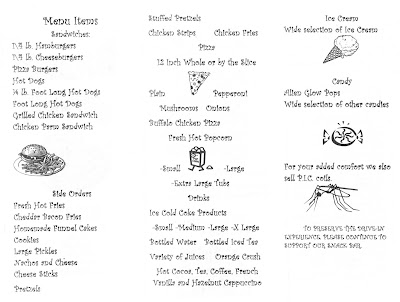 Menu Items
Sandwiches:
1\4 lb. Hamburgers
1\4 lb. Cheeseburgers
Pizza Burgers
Hot Dogs
¼ lb. Foot Long Hot Dogs
Foot Long Hot Dogs
Grilled Chicken Sandwich
Chicken Parm Sandwich
Side Orders
Fresh Hot Fries
Cheddar Bacon Fries
Homemade Funnel Cakes
Cookies
Large Pickles
Nachos and Cheese
Cheese Sticks
Pretzels
Stuffed Pretzels
Chicken Strips Chicken Fries
Pizza
12 Inch Whole or by the Slice
Plain Pepperoni
Mushrooms Onions
Buffalo Chicken Pizza
Fresh Hot Popcorn
-Small -Large
-Extra Large Tubs
Drinks
Ice Cold Coke Products
-Small -Medium -Large -X Large
Bottled Water Bottled Iced Tea
Variety of Juices Orange Crush
Hot Cocoa, Tea, Coffee, French
Vanilla and Hazelnut Cappuccino
Ice Cream
Wide selection of Ice Cream
Candy
Alien Glow Pops
Wide selection of other candies
For your added comfort we also
sell P.I.C. coils.
TO PRESERVE THE DRIVE-IN
EXPERIENCE PLEASE CONTINUE TO
SUPPORT OUR SNACK BAR.